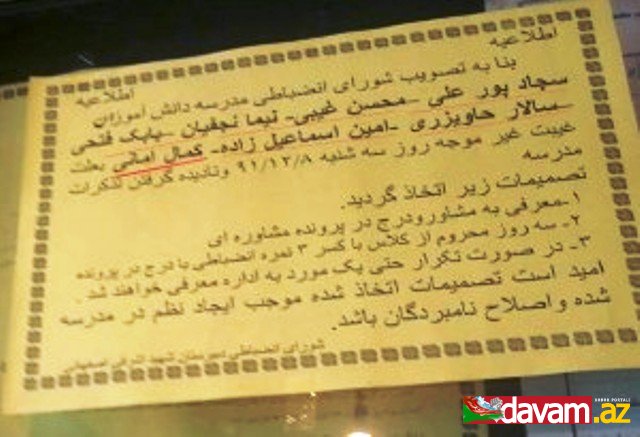 اطلاعیه
اطلاعیه
بنا به تصویب شورای انضباطی مدرسه دانش آموزان
سجاد پور علی -محسن غیبی- نیما نجفیان -بابک فتحی
-سالار حاویزری -امین اسماعیل زاده- کمال امانی بعلت
غیبت غیر موجه روز سه شنبه ۹۱/۱۲/۸ ونادیده گرفتن تذکرات
مدرسه
تصمیمات زیر اتخاذ گردید.
۱-معرفی به مشاورودرج در پرونده مشاوره ای
۲- سه روز محروم از کلاس با کسر ۳ نمره انضباطی با درج در پرونده
۳- در صورت تکرار حتی یک مورد به اداره معرفی خواهند شد .
امید است تصمیمات اتخاذ شده موجب ایجاد نظم در مدرسه
شده و اصلاح نامبردگان باشد.
شورای انضباطی دبیرستان شهید اشرفی اصفهانی
XƏBƏR PORTALI
davam.az